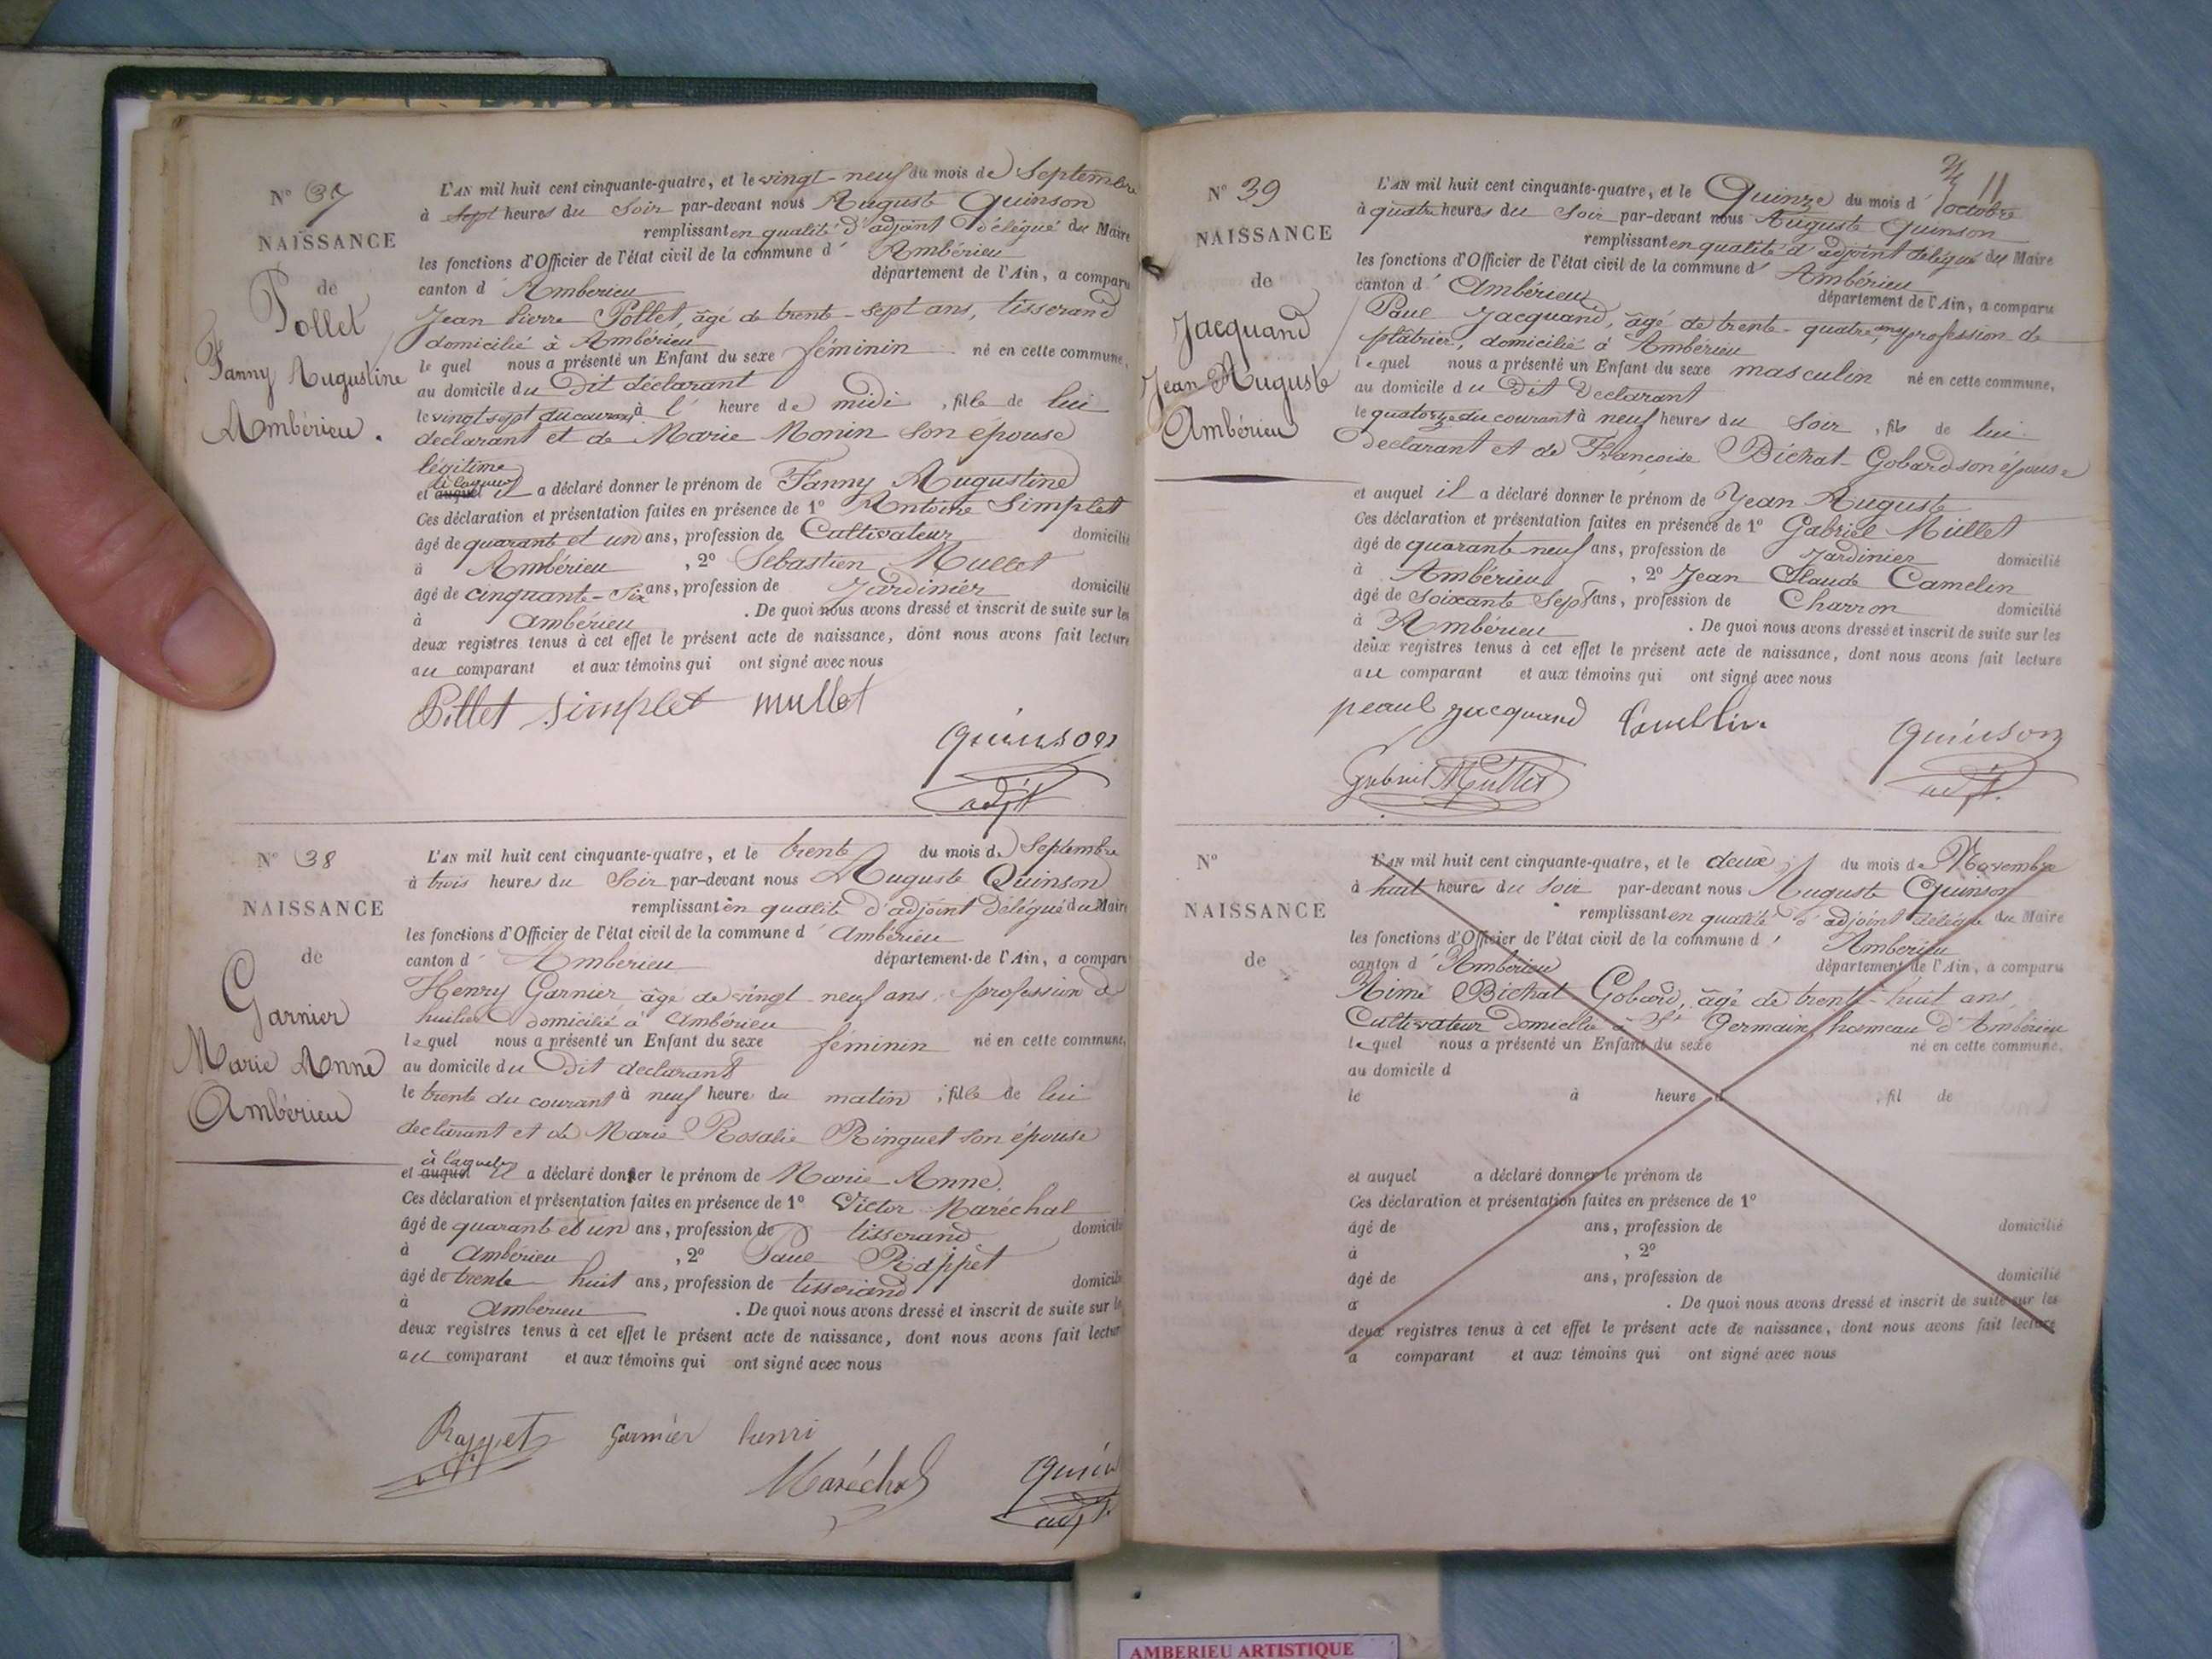 N° 37
NAISSANCE
de
Pollet
Fanny Augustine
Ambérieu.
L'AN mil huit cent cinquante-quatre, et le vingt-neuf du mois de Septembre
à sept heures du Soir par-devant nous Auguste Quinson
remplissant en qualité d'adjoint Délégué du Maire
les fonctions d'Officier de l'état civil de la commune d' Ambérieu
canton d' Amberieu département de l'Ain, a comparu
Jean Pierre Pollet, âgé de trente-sept ans, tisserand
domicilié à Ambérieu
le quel nous a présenté un Enfant du sexe féminin né en cette commune,
au domicile du Dit déclarant
le vingt sept du courant à l' heure de midi , fille de lui
déclarant et de Marie Monin son épouse
légitime
à laquelle
et auquel il a déclaré donner le prénom de Fanny Augustine
Ces déclaration et présentation faites en présence de 1° Antoine Simplet
âgé de quarante et un ans, profession de Cultivateur domicilié
à Ambérieu , 2° Sebastien Mullet
âgé de cinquante-Six ans, profession de Jardinier domicilié
à Ambérieu . De quoi nous avons dressé et inscrit de suite sur les
deux registres tenus à cet effet le présent acte de naissance, dont nous avons fait lecture
au comparant et aux témoins qui ont signé avec nous
Pollet simplet mullet
Quinson
adjt
N° 38
NAISSANCE
de
Garnier
Marie Anne
Ambérieu
L'AN mil huit cent cinquante-quatre, et le trente du mois de Septembre
à trois heures du Soir par-devant nous Auguste Quinson
remplissant en qualité d'adjoint Délégué du Maire
les fonctions d'Officier de l'état civil de la commune d' Ambérieu
canton d' Amberieu département de l'Ain, a comparu
Henry Garnier âgé de vingt neuf ans, profession de
huilier domicilié à Ambérieu
le quel nous a présenté un Enfant du sexe féminin né en cette commune,
au domicile du Dit declarant
le trente du courant à neuf heures du matin , fille de lui
declarant et de Marie Rosalie Ringuet son épouse
à laquelle
et auquel il a déclaré donner le prénom de Marie Anne.
Ces déclaration et présentation faites en présence de 1° Victor Maréchal
âgé de quarante et un ans, profession de tisserand domicilié
à Ambérieu , 2° Paul Rappet
âgé de trente huit ans, profession de tisserand domicilié
à Amberieu . De quoi nous avons dressé et inscrit de suite sur les
deux registres tenus à cet effet le présent acte de naissance, dont nous avons fait lecture
au comparant et aux témoins qui ont signé avec nous
Rappet Garnier henri
Maréchal
adjt
11
N° 39
NAISSANCE
de
Jacquand
Jean Auguste
Ambérieu
L'AN mil huit cent cinquante-quatre, et le Quinze du mois d' octobre
à quatre heures du Soir par-devant nous Auguste Quinson
remplissant en qualité d'adjoint délégué du Maire
les fonctions d'Officier de l'état civil de la commune d' Ambérieu
canton d' Ambérieu département de l'Ain, a comparu
Paul Jacquand, âgé de trente-quatre ans, profession de
plâtrier, domicilié à Ambérieu
le quel nous a présenté un Enfant du sexe masculin né en cette commune,
au domicile du Dit Declarant
le quatorze du courant à neuf heures du Soir , fils de lui
Declarant et de Françoise Bichat-Gobard son épouse
et auquel il a déclaré donner le prénom de Jean Auguste
Ces déclaration et présentation faites en présence de 1° Gabriel Mullet
âgé de quarante neuf ans, profession de Jardinier domicilié
à Ambérieu , 2° Jean Claude Camelin
âgé de soixante Sept ans, profession de Charron domicilié
à Ambérieu . De quoi nous avons dressé et inscrit de suite sur les
deux registres tenus à cet effet le présent acte de naissance, dont nous avons fait lecture
au comparant et aux témoins qui ont signé avec nous
peaul jacquand Camelin
Quinson
Gabriel Mullet
adjt.
N°
NAISSANCE
de
L'AN mil huit cent cinquante-quatre, et le deux du mois de Novembre
à huit heures du Soir par-devant nous Auguste Quinson
remplissant en qualité d'adjoint délégué du Maire
les fonctions d'Officier de l'état civil de la commune d' Amberieu
canton d' Ambérieu département de l'Ain, a comparu
Aimé Bichat Gobard, âgé de trente-huit ans,
Cultivateur domicilié à St Germain, hameau d'Ambérieu
le quel nous a présenté un Enfant du sexe né en cette commune,
au domicile d
le à heure d , fil de
et auquel a déclaré donner le prénom de
Ces déclaration et présentation faites en présence de 1°
âgé de ans, profession de domicilié
à , 2°
âgé de ans, profession de domicilié
à . De quoi nous avons dressé et inscrit de suite sur les
deux registres tenus à cet effet le présent acte de naissance, dont nous avons fait lecture
a comparant et aux témoins qui ont signé avec nous
AMBERIEU ARTISTIQUE